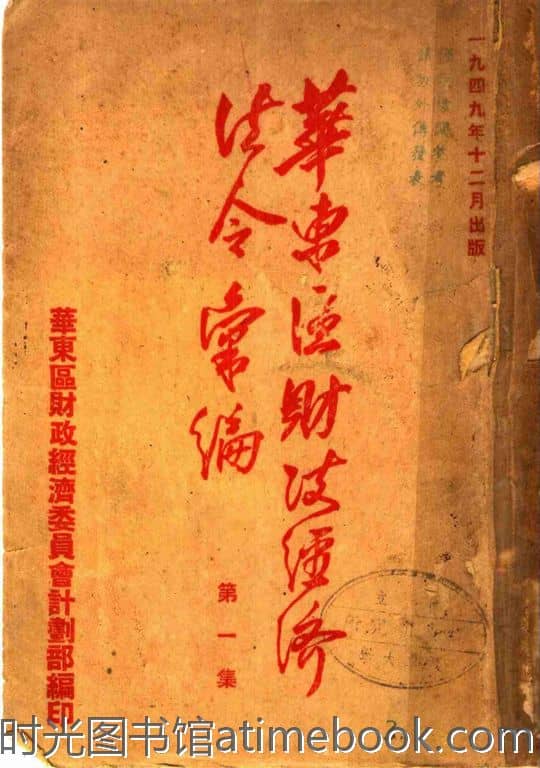 一九四九年十二月出版
僅供當局參考
請勿外傳發表
華東區財政經濟
法令彙編
第一集
華東區財政經濟委員會計劃部編印
时光图书馆atimebook.com